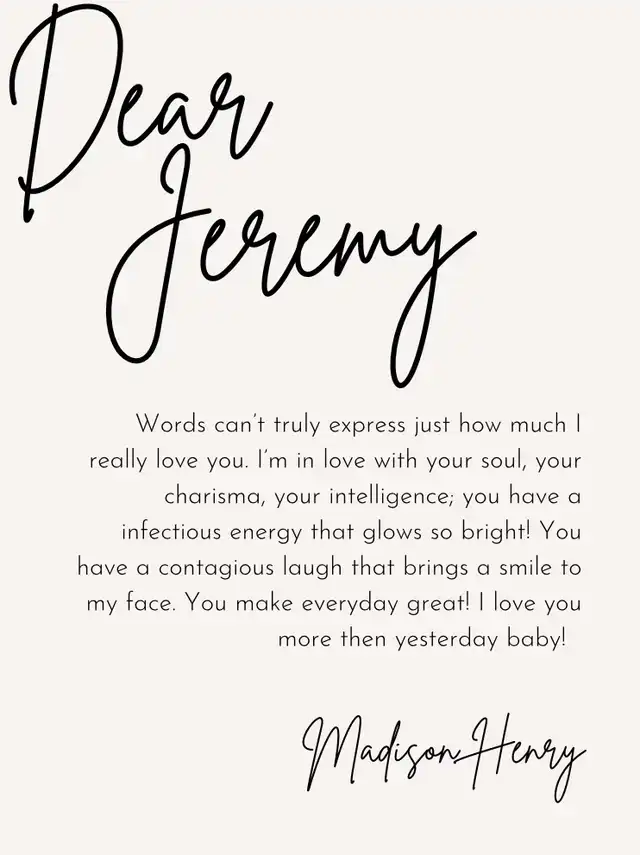 Dear
Jeremy
Words can't truly express just how much I
really love you. I'm in love with your soul, your
charisma, your intelligence; you have a
infectious energy that glows so bright! You
have a contagious laugh that brings a smile to
my face. You make everyday great! I love you
more then yesterday baby!
Madison Henry